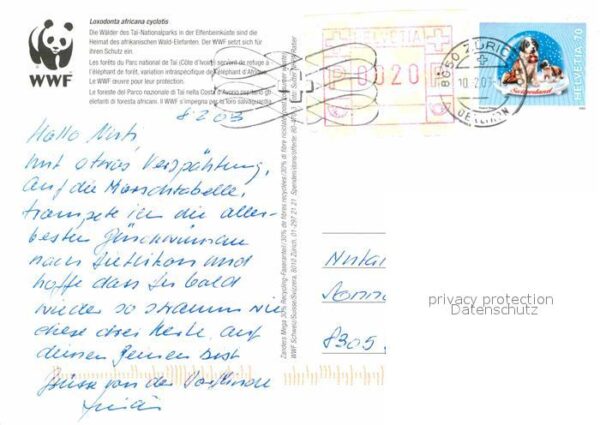 Loxodonta africana cyclotis
Die Wälder des Tai-Nationalparks in der Elfenbeinküste sind die
Heimat des afrikanischen Wald-Elefanten. Der WWF setzt sich für
ihren Schutz ein.
Les forêts du Parc national de Taï (Côte d'Ivoire) servent de refuge à
l'éléphant de forêt, variation intraspécifique de l'éléphant d'Afrique.
Le WWF œuvre pour leur protection.
Le foreste del Parco nazionale di Tai nella Costa d'Avorio
elefanti di foresta africani. Il WWF s'impegna per la loro salvaguardia.
WWF
8 2 03
Hallo
mit etwas Verspätung,
auf die Marschtabelle,
trampete ich die aller-
besten Glückwünsche
nach Dietlikon und
hoffe dass Du bald
wieder so stramm wie
diese drei Kerle auf
deinen Beinen bist
Grüsse von der
HELVETIA
P 0020 P
8050 ZÜRICH
10.2.03
OERLIKON
Switzerland
HELVETIA 70
Zanders Mega 30% Recycling-Faseranteil / 30% de fibres recyclées / 30% di fibre riciclate
WWF Schweiz/Suisse/Svizzera, 8010 Zürich, 01-297 21 21, Spendenkonto/offerte: 80-
8305
privacy protection
Datenschutz